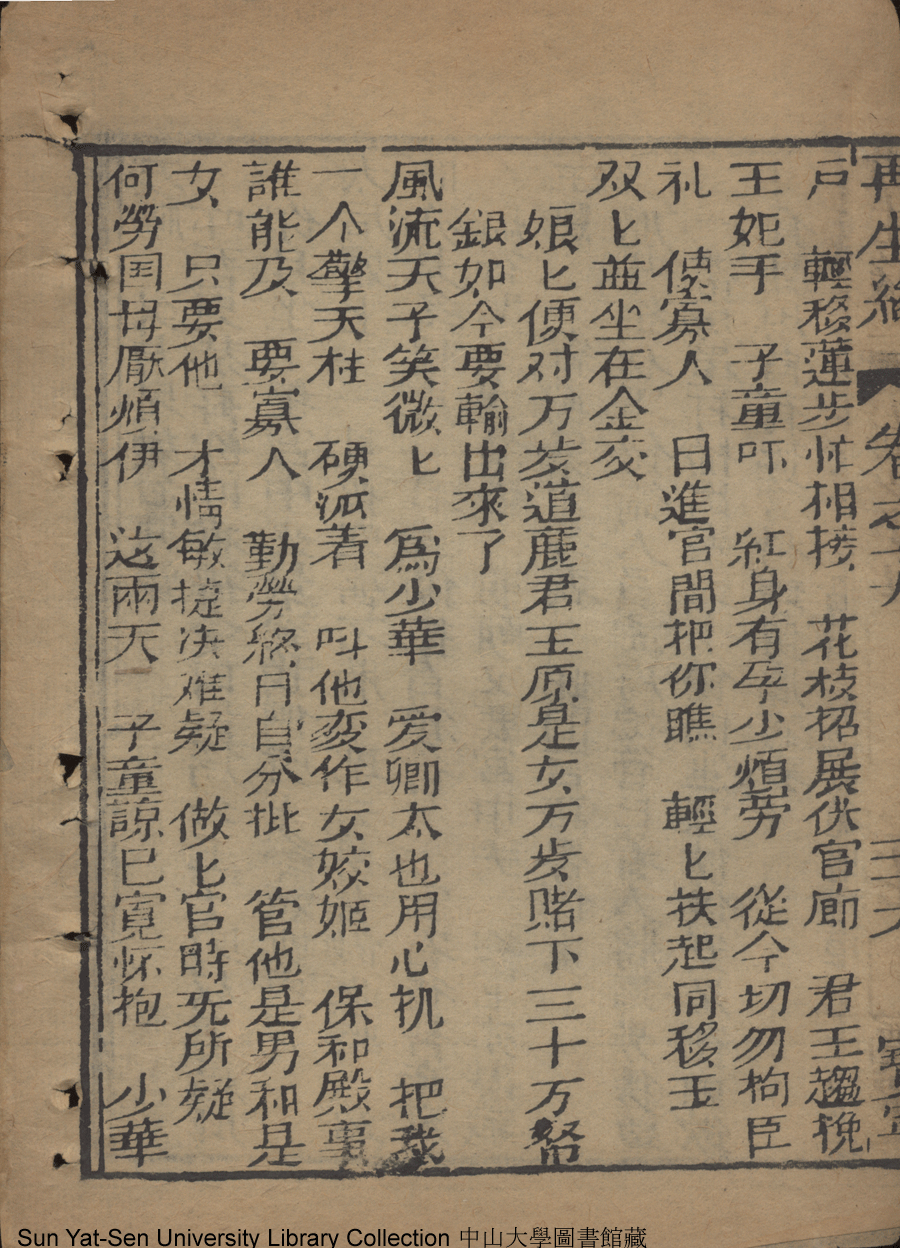 再生緣 卷之十九 三六 寶寧
戶 輕移蓮步忙相接 花枝招展供官廊 君王趨挽
王妃手 子童吓 紅身有孕少煩劳 從今切勿拘臣
礼 使寡人 日進官間把你瞧 輕匕扶起同移玉
双匕並坐在金交
娘匕便对万岁道鹿君玉原是女万岁赌下三十万帑
銀如今要輸出來了
風流天子笑微匕 爲少華 爱卿太也用心机 把我
一个擎天柱 硬派着 叫他变作女姣姬 保和殿事
誰能及 要寡人 勤勞終日自分批 管他是男和是
女 只要他 才情敏捷决难疑 做匕官時旡所疑
何勞国母厭煩伊 这兩天 子童諒已寬怀抱 少華
Sun Yat-Sen University Library Collection 中山大學圖書館藏